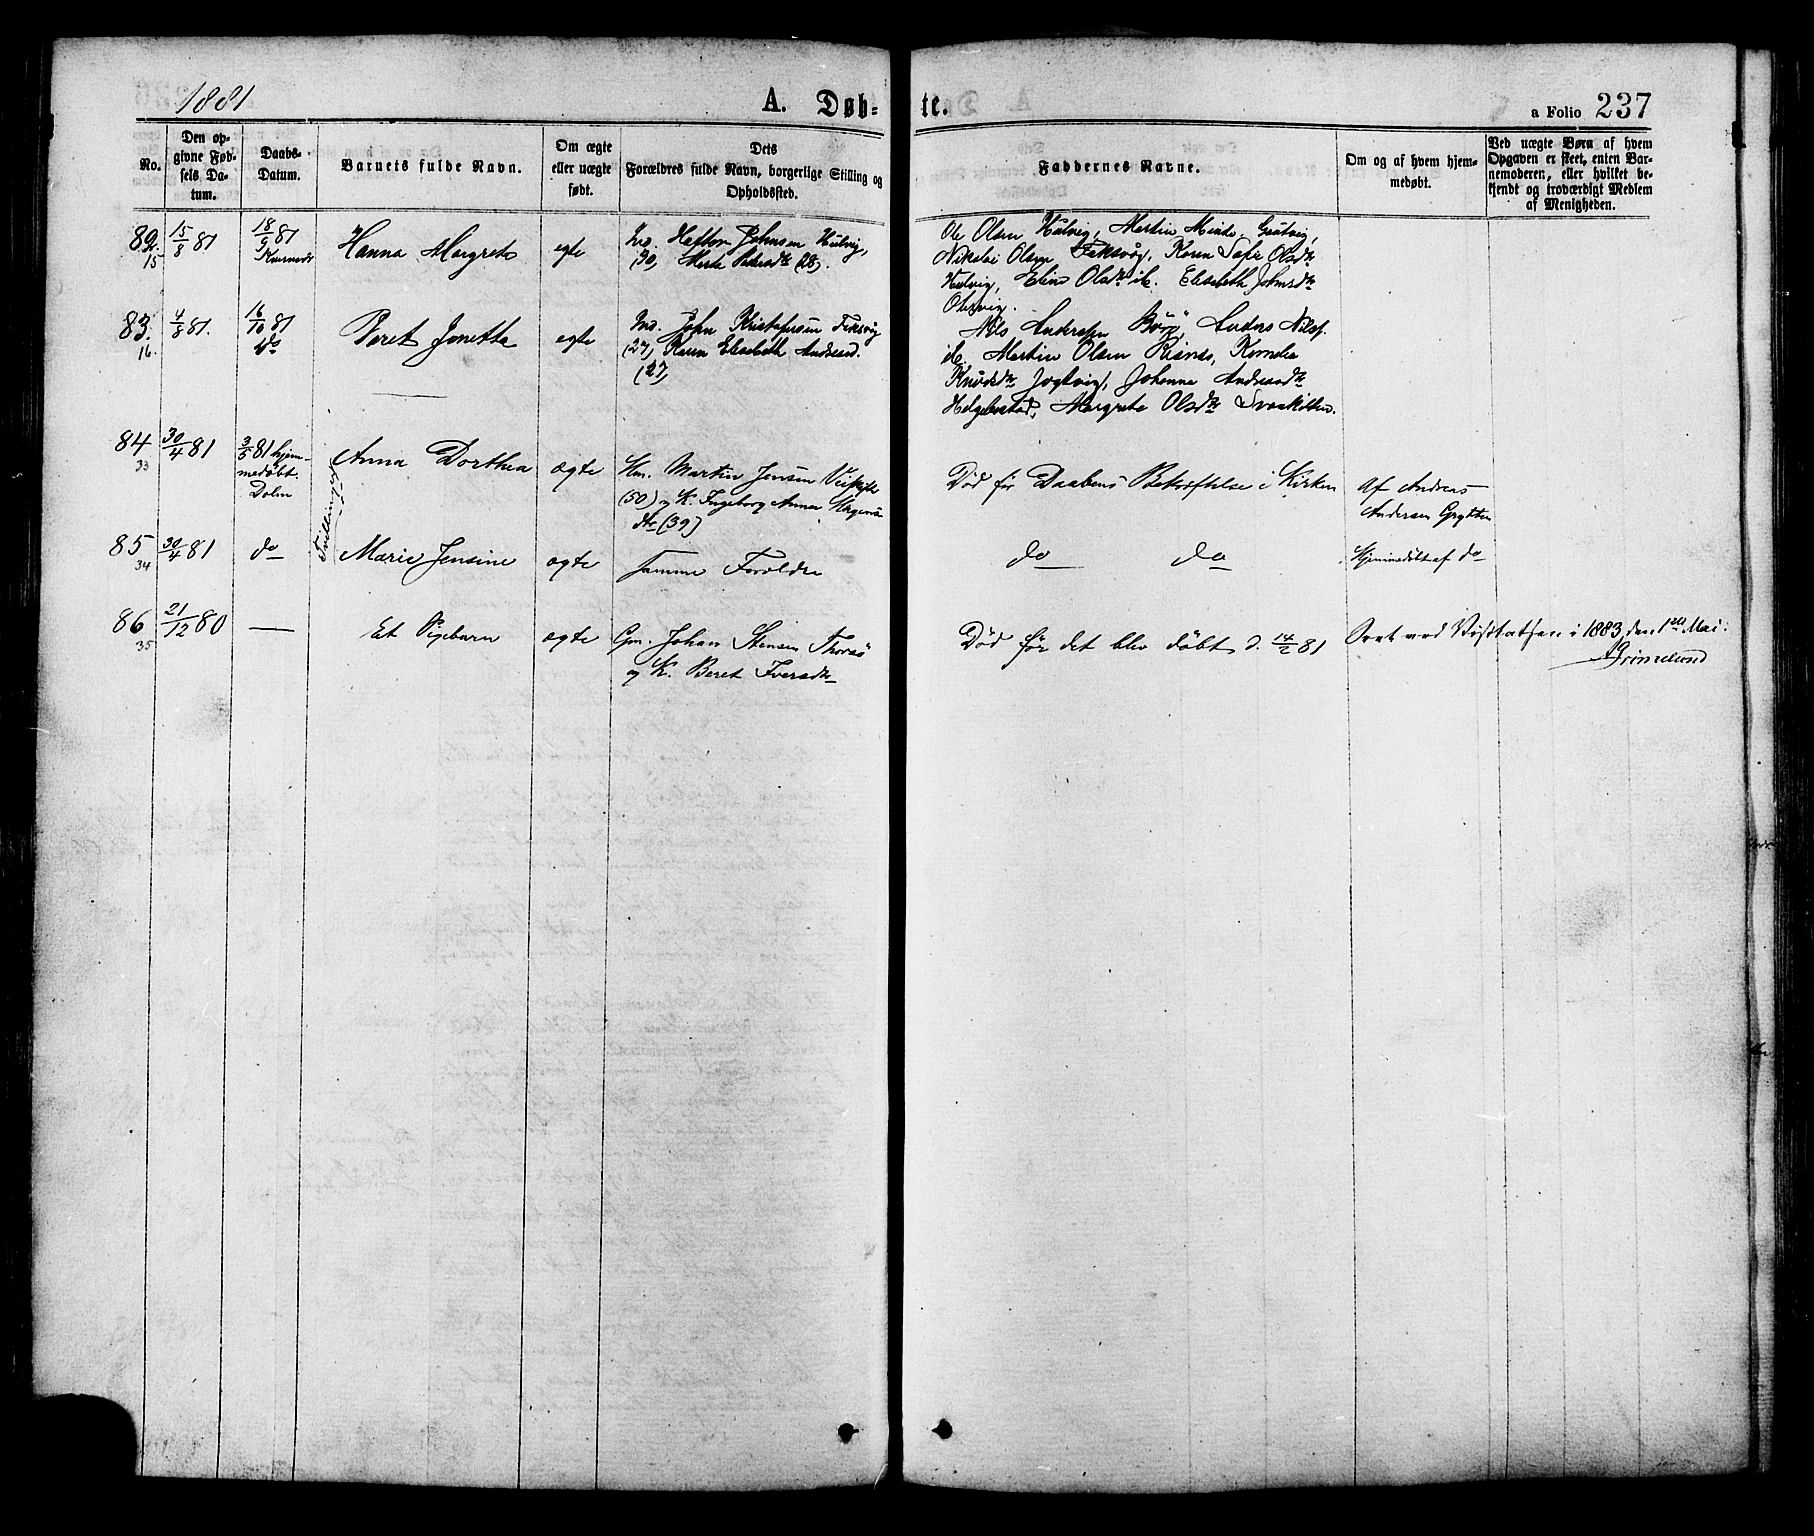 1881
A. Døb-
te.
a Folio 237
No.
Den op-
givne Fød-
sels Da-
tum.
Daabs-
Datum.
Barnets fulde Navn.
Om ægte
eller uægte
født.
Dets
Forældres fulde Navn, borgerlige Stilling og
Opholdssted.
Faddernes Navne.
Om og af hvem hjem-
medøbt.
Ved uægte Børn af hvem
Opgaven er skeet, enten Bar-
nemoderen, eller hvilket be-
kjendt og troværdigt Medlem
af Menigheden.
82
15
15/8 81
18/9 81
Hanna Margrete
egte
Ind. Johnsen Hulvig,
(30) Petersdtr (28).
Ole Olsen Hulvig, Martin
Nikolai Olsen Karen Olsdtr
Hulvig, Olsdtr ib. Elisabeth Johnsdtr
83.
16.
4/8 81.
16/10 81
Beret Jonetta
egte
Ind. John Kristofersen
(27) Karen Elisabeth Andreasd.
(27)
Nils Andersen Anders Nilss.
ib. Martin Olsen Kornelia
Knudsdtr Johanna Andreasdtr
Margrete Olsdtr
84
33
30/4 81
3/5 81 hjem-
medøbt.
Tvillinger
Anna Dorthea
ægte
Martin Jensen
(50) og K. Ingeborg Anna
dtr (39)
Død før Daabens Bekræftelse i Kirken
Af Andreas
Andersen Grytten
85
34
30/4 81
do
Marie Jensine
ægte
Samme Foreldre
do do
Hjemmedøbt af do
86
35
21/12 80
—
Et Pigebarn
ægte
Gm. Johan Stensen
og K. Beret Iversdtr
Død før det blev døbt d. 14/2 81
ved Visitatsen i 1883, den 1ste Mai.
Grimelund